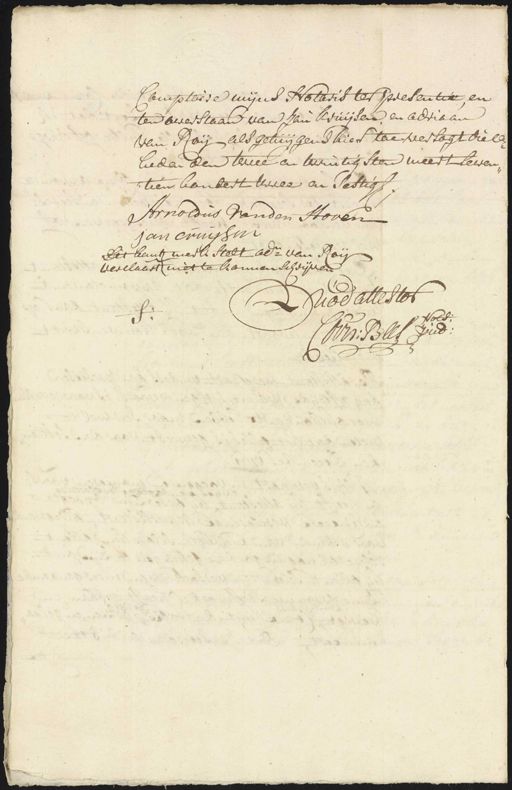 Comptoire mijns Notaris ter presentie en
ten overstaan van Jan Cruijsen en adriaan
van Roij als getuijgens hier toe versogt die la
heden den twee en twintigsten meert seven-
tien hondert twee en sestigh.
Arnoldus van den Hoven
Jan cruijsen
Dit hant merk stelt ad: van Roij
verclaart niet te konnen schrijven
Quod attestor
Not:
pub: